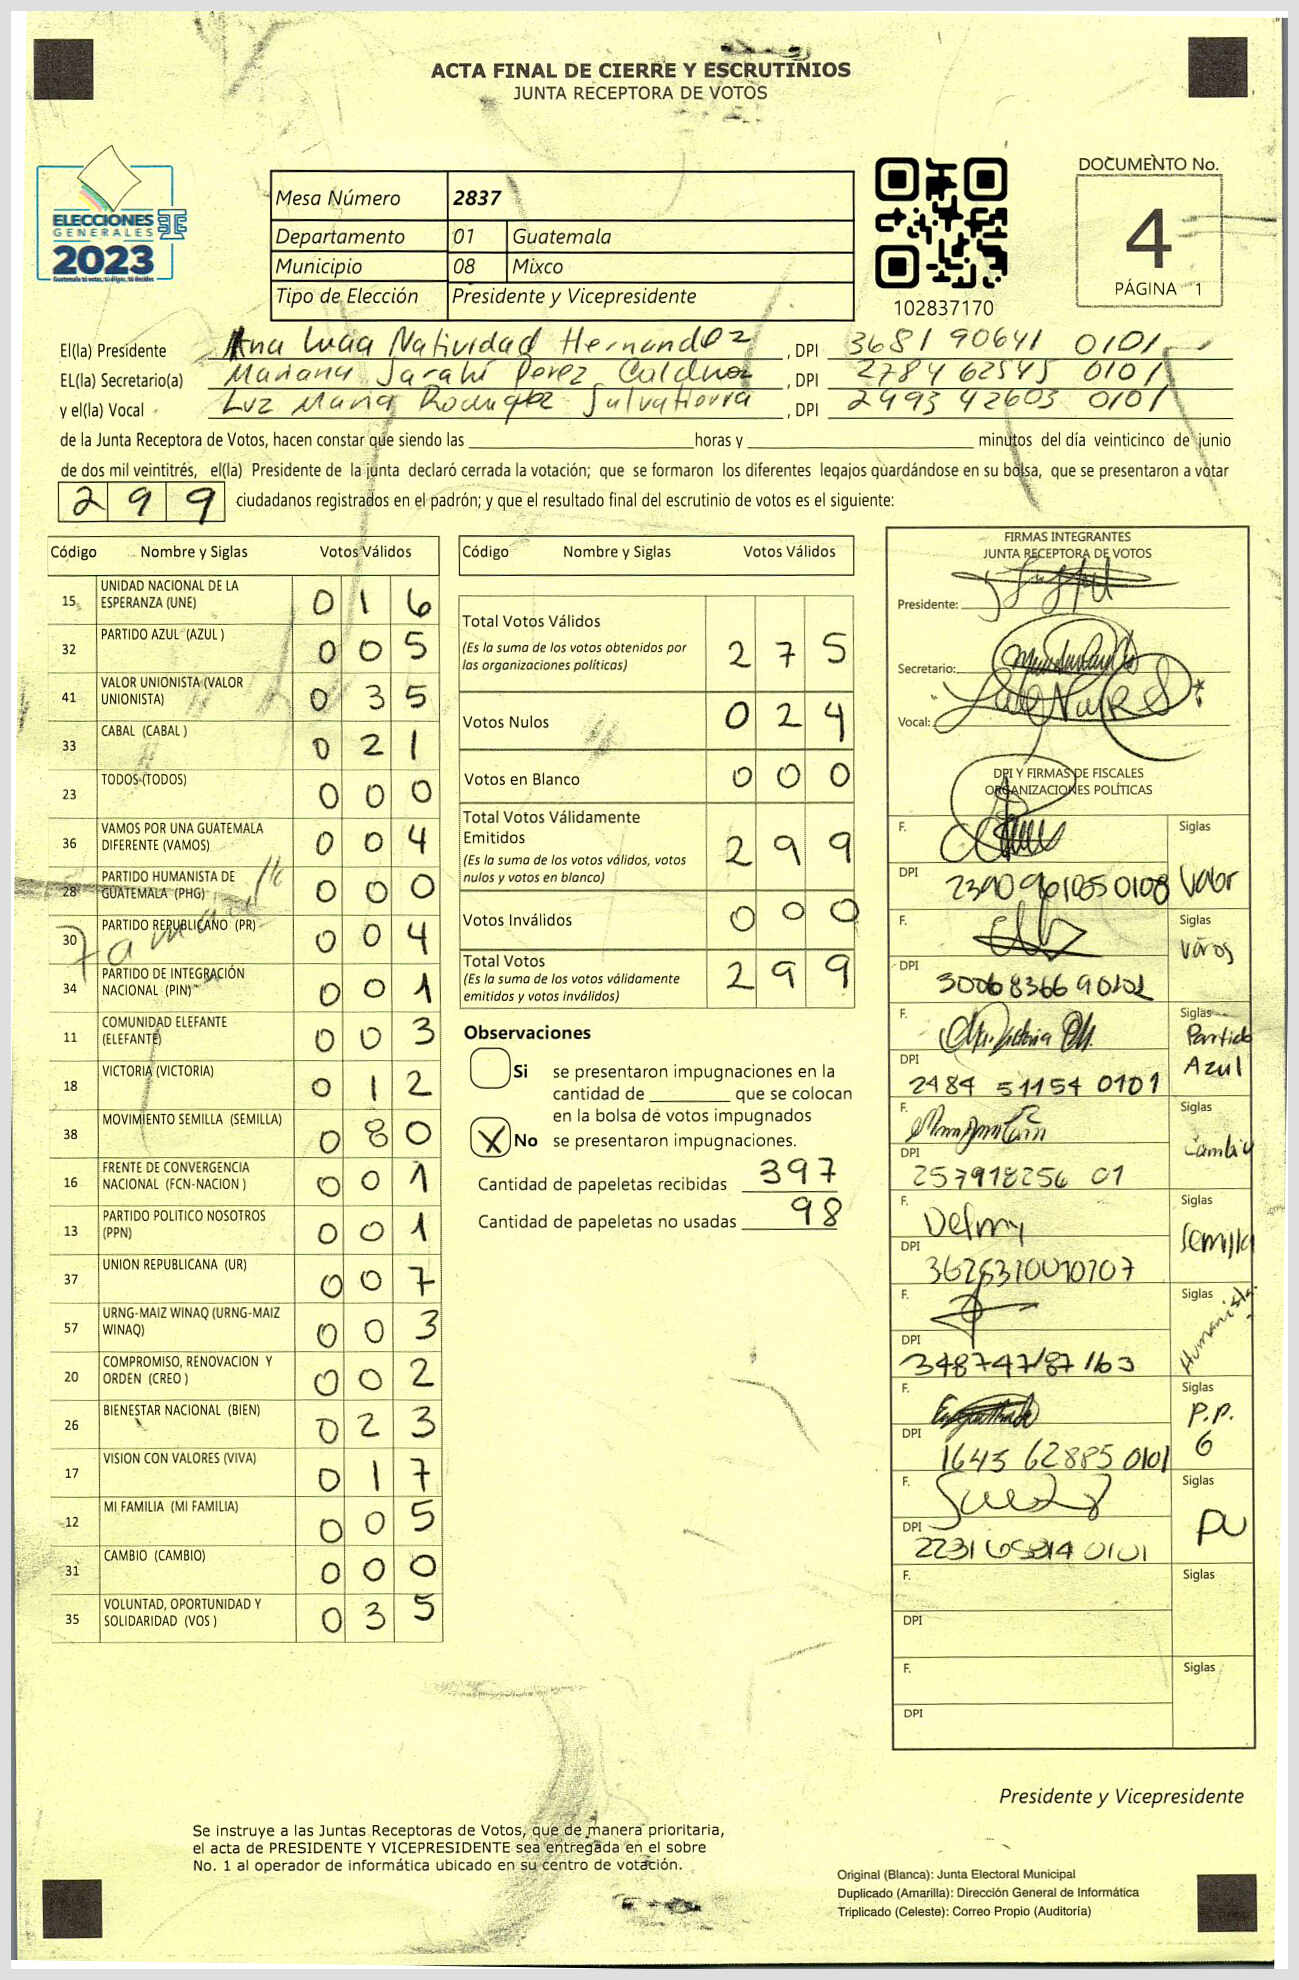 ACTA FINAL DE CIERRE Y ESCRUTINIOS
JUNTA RECEPTORA DE VOTOS
ELECCIONES
GENERALES
2023
Guatemala tú votas, tú eliges, tú decides
Mesa Número 2837
Departamento 01 Guatemala
Municipio 08 Mixco
Tipo de Elección Presidente y Vicepresidente
102837170
DOCUMENTO No.
4
PÁGINA 1
El(la) Presidente Ana Lucia Natividad Hernandez , DPI 3681 90641 0101
EL(la) Secretario(a) Mariana Sarahí Perez , DPI 2784 62545 0101
y el(la) Vocal Luz Maria Rodriguez Salvatierra , DPI 2493 42603 0101
de la Junta Receptora de Votos, hacen constar que siendo las horas y minutos del día veinticinco de junio
de dos mil veintitrés, el(la) Presidente de la junta declaró cerrada la votación; que se formaron los diferentes legajos guardándose en su bolsa, que se presentaron a votar
299 ciudadanos registrados en el padrón; y que el resultado final del escrutinio de votos es el siguiente:
Código Nombre y Siglas Votos Válidos
15 UNIDAD NACIONAL DE LA ESPERANZA (UNE) 0 1 6
32 PARTIDO AZUL (AZUL ) 0 0 5
41 VALOR UNIONISTA (VALOR UNIONISTA) 0 3 5
33 CABAL (CABAL ) 0 2 1
23 TODOS (TODOS) 0 0 0
36 VAMOS POR UNA GUATEMALA DIFERENTE (VAMOS) 0 0 4
28 PARTIDO HUMANISTA DE GUATEMALA (PHG) 0 0 0
30 PARTIDO REPUBLICANO (PR) 0 0 4
34 PARTIDO DE INTEGRACIÓN NACIONAL (PIN) 0 0 1
11 COMUNIDAD ELEFANTE (ELEFANTE) 0 0 3
18 VICTORIA (VICTORIA) 0 1 2
38 MOVIMIENTO SEMILLA (SEMILLA) 0 8 0
16 FRENTE DE CONVERGENCIA NACIONAL (FCN-NACION ) 0 0 1
13 PARTIDO POLITICO NOSOTROS (PPN) 0 0 1
37 UNION REPUBLICANA (UR) 0 0 7
57 URNG-MAIZ WINAQ (URNG-MAIZ WINAQ) 0 0 3
20 COMPROMISO, RENOVACION Y ORDEN (CREO ) 0 0 2
26 BIENESTAR NACIONAL (BIEN) 0 2 3
17 VISION CON VALORES (VIVA) 0 1 7
12 MI FAMILIA (MI FAMILIA) 0 0 5
31 CAMBIO (CAMBIO) 0 0 0
35 VOLUNTAD, OPORTUNIDAD Y SOLIDARIDAD (VOS ) 0 3 5
Código Nombre y Siglas Votos Válidos
Total Votos Válidos 2 7 5
(Es la suma de los votos obtenidos por
las organizaciones políticas)
Votos Nulos 0 2 4
Votos en Blanco 0 0 0
Total Votos Válidamente
Emitidos 2 9 9
(Es la suma de los votos válidos, votos
nulos y votos en blanco)
Votos Inválidos 0 0 0
Total Votos 2 9 9
(Es la suma de los votos válidamente
emitidos y votos inválidos)
Observaciones
Si se presentaron impugnaciones en la
cantidad de que se colocan
en la bolsa de votos impugnados
X No se presentaron impugnaciones.
Cantidad de papeletas recibidas 397
Cantidad de papeletas no usadas 98
FIRMAS INTEGRANTES
JUNTA RECEPTORA DE VOTOS
Presidente:
Secretario:
Vocal:
DPI Y FIRMAS DE FISCALES
ORGANIZACIONES POLÍTICAS
F. Siglas
DPI Valor
F. Siglas
DPI 30068366 90101
F. Siglas Partido Azul
DPI 2484 51154 0101
F. Siglas Cambio
DPI 257918256 01
F. Delmy Siglas Semilla
DPI
F. Siglas Humanista
DPI
F. Siglas P.P. G
DPI 1643 62885 0101
F. Siglas PU
DPI
F. Siglas
DPI
F. Siglas
DPI
Presidente y Vicepresidente
Se instruye a las Juntas Receptoras de Votos, que de manera prioritaria,
el acta de PRESIDENTE Y VICEPRESIDENTE sea entregada en el sobre
No. 1 al operador de informática ubicado en su centro de votación.
Original (Blanca): Junta Electoral Municipal
Duplicado (Amarilla): Dirección General de Informática
Triplicado (Celeste): Correo Propio (Auditoría)